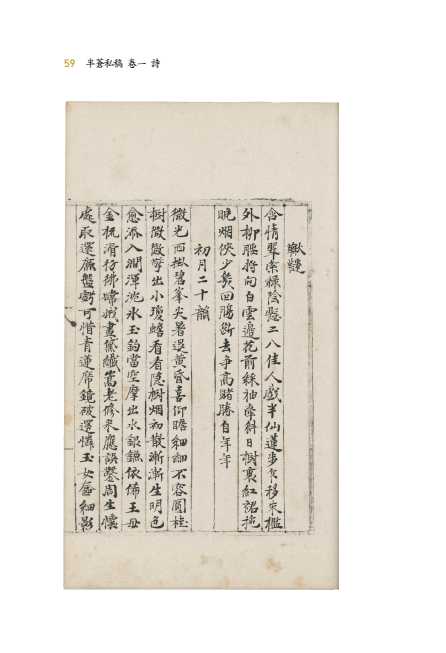 59 半蒼私稿 卷一 詩
鞦韆
含情翠索緑陰懸二八佳人戲半仙蓮步乍移朱檻
外柳腰將向白雲邊花前綵袖牽斜日樹裏紅裙拖
晩烟俠少幾回腸斷去爭高賭勝自年年
初月二十韻
微光西掛碧峯尖暑退黃昏喜仰瞻細細不容圓桂
樹微微學出小瓊蟾看看隱樹烟初散漸漸生明色
愈添入澗渾沈水玉鈎當空摩出水銀鎌依俙王母
金梳滑彷彿嫦娥畫黛纖蒿老修來應誤鑿周生懷
處取還廉盤虧可惜青蓮席鏡破還憐玉女奩細影